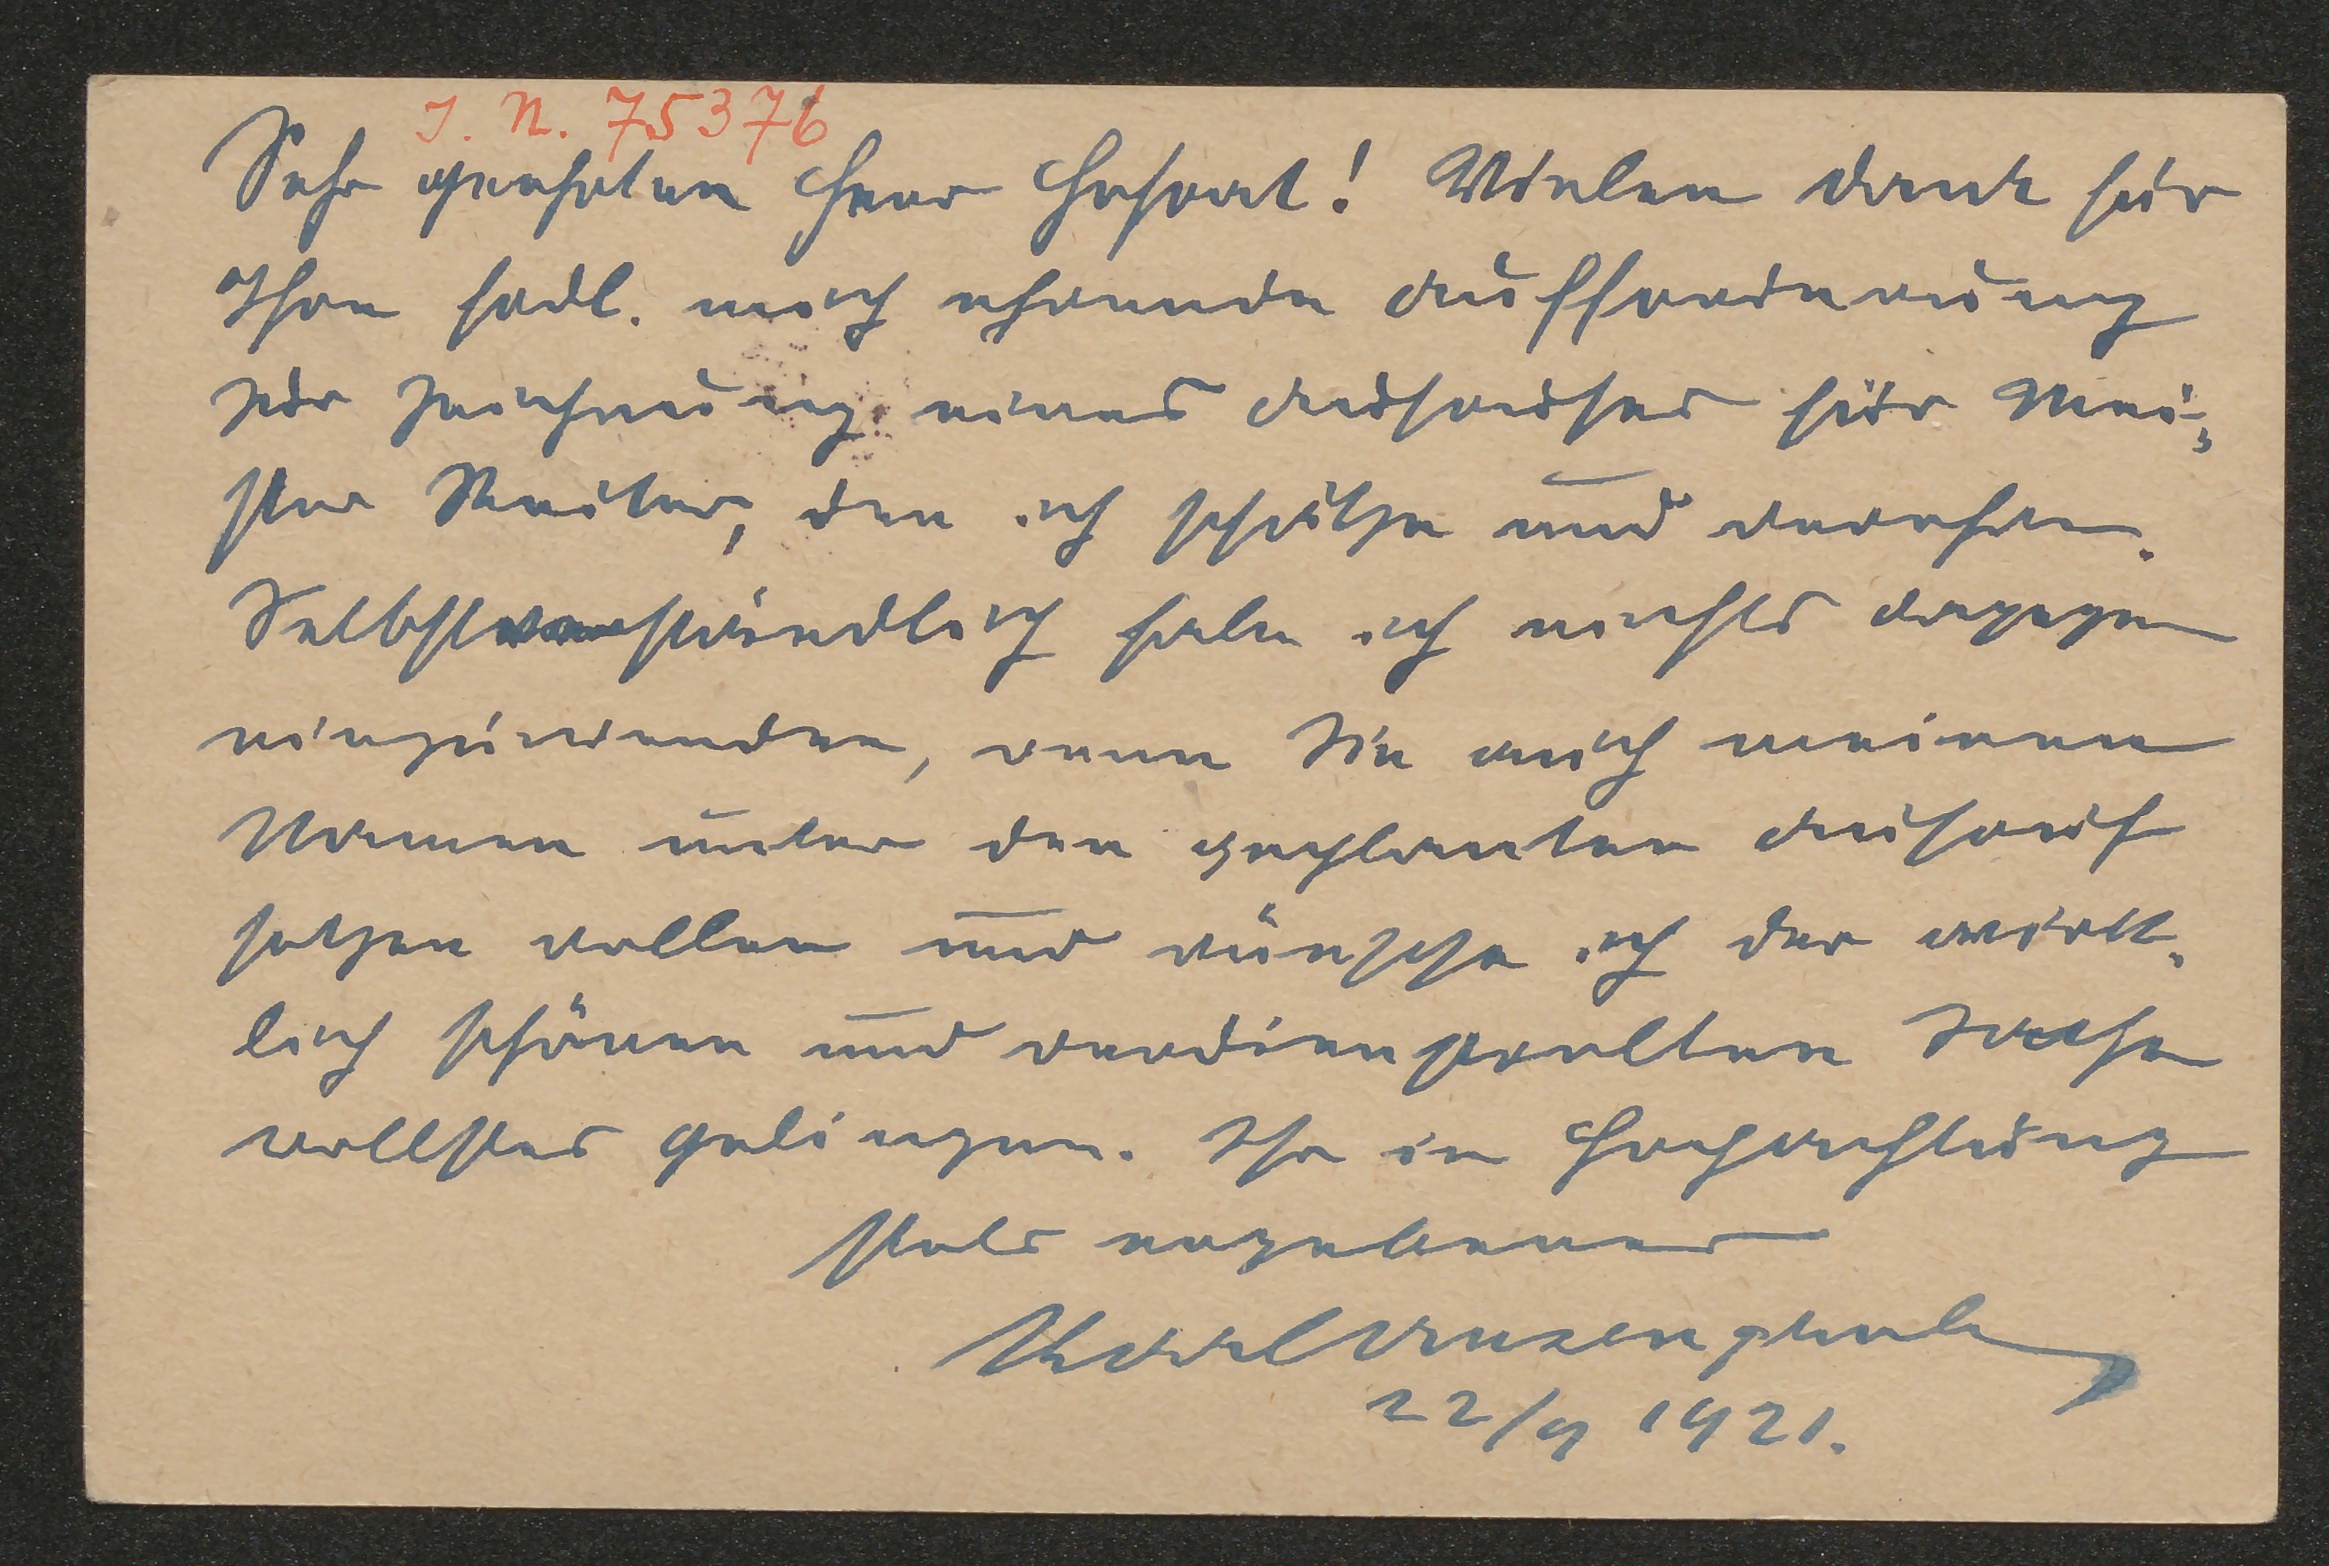 I. N. 75376
Sehr geehrter Herr Hofrat! Vielen Dank für
Ihre frdl. mich ehrende Aufforderung
zur Zeichnung eines Aufrufes für Mei-
ster Reiter, den ich schätze und verehre.
Selbstverständlich habe ich nichts dagegen
einzuwenden, wenn Sie auch meinen
Namen unter den geplanten Aufruf
setzen wollen und wünsche ich der wirk-
lich schönen und verdienstvollen Sache
vollstes Gelingen. Ihr in Hochachtung
stets ergebener
Karl
22/9 1921.